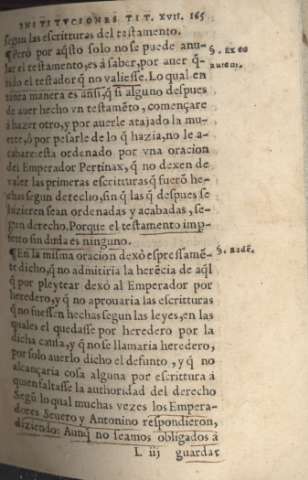 INSTITVCIONES TIT. XVII. 165
segun las escrituras del testamento.
¶Pero por aqsto solo no se puede anu-
lar el testamento, es à saber, por auer q̃-
rido el testador q̃ no valiesse. Lo qual en
tanta manera es ansi, q̃ si alguno despues
de auer hecho vn testamẽto, començare
à hazer otro, y por auerle atajado la mu-
erte, ò por pesarle de lo q̃ hazia, no le a-
cabare: esta ordenado por vna oracion
del Emperador Pertinax, q̃ no dexen de
valer las primeras escrituras q̃ fuerõ he-
chas segun derecho, sin q̃ las q̃ despues se
hizieren sean ordenadas y acabadas, se-
gun derecho. Porque el testamento imp-
fecto sin duda es ninguno.
¶En la misma oracion dexò espressamẽ-
te dicho, q̃ no admitiria la herẽcia de aq̃l
q̃ por pleytear dexò al Emperador por
heredero, y q̃ no aprouaria las escritturas
q̃ no fuessen hechas segun las leyes, en las
quales el quedasse por heredero por la
dicha causa, y q̃ no se llamaria heredero,
por solo auerlo dicho el defunto, y q̃ no
alcançaria cosa alguna por escritura à
quien faltasse la authoridad del derecho
Segũ lo qual muchas vezes los Empera-
dores Seuero y Antonino respondieron,
diziendo: Aunq̃ no seamos obligados à
L iij guardar
§. Ex eo
autem.
§. Eadẽ.